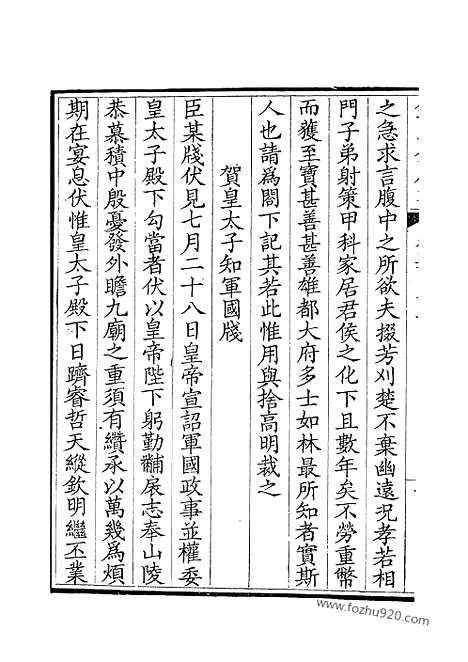 之急求言腹中之所欲夫掇芳刈楚不棄幽遠況孝若相
門子弟射策甲科家居君侯之化下且數年矣不勞重幣
而獲至寶甚善甚善雄都大府多士如林最所知者實斯
人也請爲閣下記其若此惟用與捨高明裁之
賀皇太子知軍國牋
臣某牋伏見七月二十八日皇帝宣詔軍國政事並權委
皇太子殿下勾當者伏以皇帝陛下躬勤黼扆志奉山陵
恭慕積中殷憂發外瞻九廟之重須有纘承以萬幾爲煩
期在宴息伏惟皇太子殿下日躋睿哲天縱欽明繼丕業
www.fozhu920.com